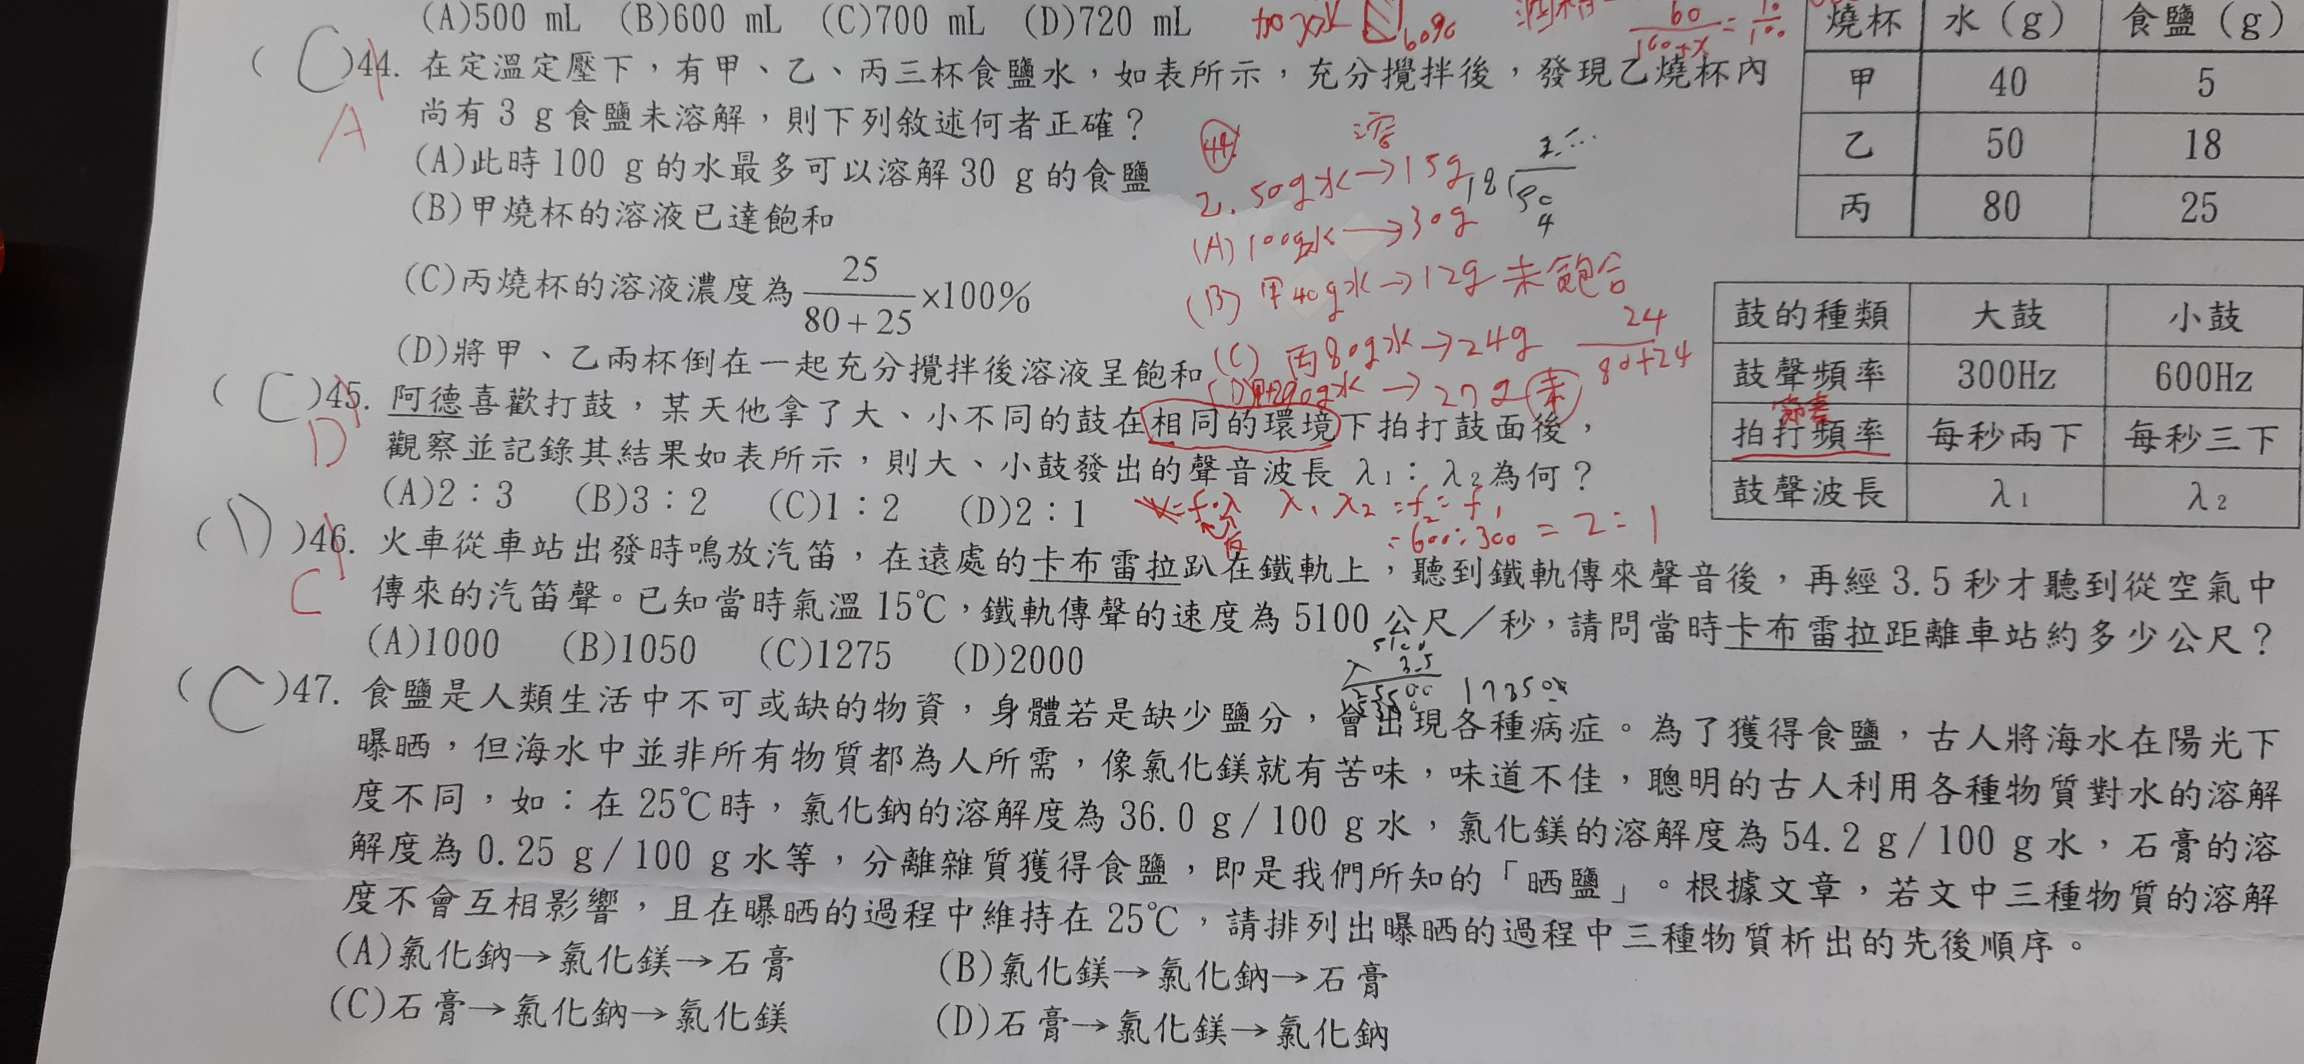 (A)500 mL (B)600 mL (C)700 mL (D)720 mL
60%
60/(100+x)=10/100
( C )44. 在定溫定壓下，有甲、乙、丙三杯食鹽水，如表所示，充分攪拌後，發現乙燒杯內
A
尚有 3 g 食鹽未溶解，則下列敘述何者正確？
(A)此時100 g 的水最多可以溶解30 g 的食鹽
(B)甲燒杯的溶液已達飽和
(C)丙燒杯的溶液濃度為 25/(80+25) ×100%
(D)將甲、乙兩杯倒在一起充分攪拌後溶液呈飽和
燒杯 水（g） 食鹽（g）
甲 40 5
乙 50 18
丙 80 25
44.
溶
乙. 50g水→15g
(A) 100g水→30g
(B) 甲40g水→12g 未飽合
(C) 丙80g水→24g 24/(80+24)
90g水→27g 未
( C )45. 阿德喜歡打鼓，某天他拿了大、小不同的鼓在相同的環境下拍打鼓面後，
D
觀察並記錄其結果如表所示，則大、小鼓發出的聲音波長 λ1：λ2為何？
(A)2：3 (B)3：2 (C)1：2 (D)2：1
V=f·λ
反
λ1 λ2 =f2：f1
=600:300=2:1
鼓的種類 大鼓 小鼓
鼓聲頻率 300Hz 600Hz
節奏
拍打頻率 每秒兩下 每秒三下
鼓聲波長 λ1 λ2
( D )46. 火車從車站出發時鳴放汽笛，在遠處的卡布雷拉趴在鐵軌上，聽到鐵軌傳來聲音後，再經 3.5 秒才聽到從空氣中
C
傳來的汽笛聲。已知當時氣溫 15℃，鐵軌傳聲的速度為 5100 公尺／秒，請問當時卡布雷拉距離車站約多少公尺？
(A)1000 (B)1050 (C)1275 (D)2000
5100
3.5
( C )47. 食鹽是人類生活中不可或缺的物資，身體若是缺少鹽分，會出現各種病症。為了獲得食鹽，古人將海水在陽光下
曝晒，但海水中並非所有物質都為人所需，像氯化鎂就有苦味，味道不佳，聰明的古人利用各種物質對水的溶解
度不同，如：在 25℃時，氯化鈉的溶解度為 36.0 g／100 g 水，氯化鎂的溶解度為 54.2 g／100 g 水，石膏的溶
解度為 0.25 g／100 g 水等，分離雜質獲得食鹽，即是我們所知的「晒鹽」。根據文章，若文中三種物質的溶解
度不會互相影響，且在曝晒的過程中維持在 25℃，請排列出曝晒的過程中三種物質析出的先後順序。
(A)氯化鈉→氯化鎂→石膏 (B)氯化鎂→氯化鈉→石膏
(C)石膏→氯化鈉→氯化鎂 (D)石膏→氯化鎂→氯化鈉